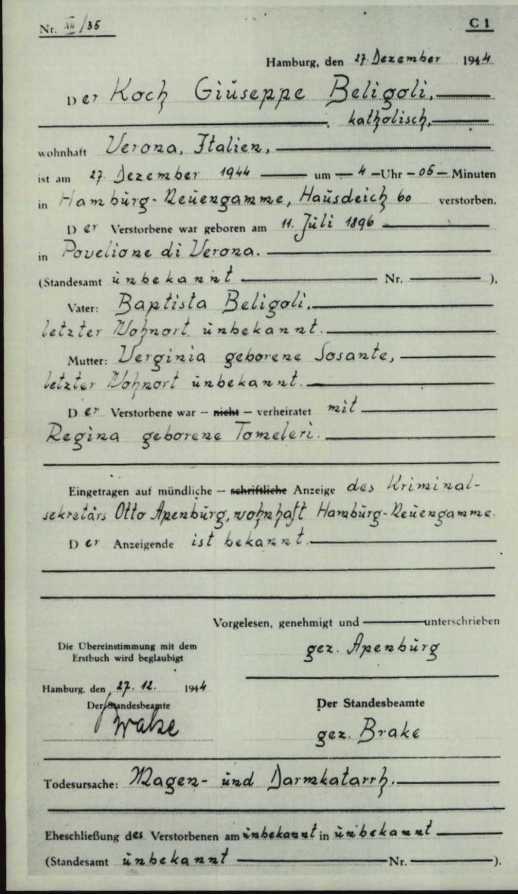 Nr. XII/35 C 1
Hamburg, den 27. Dezember 1944.
Der Koch Giuseppe Beligoli,
katholisch,
wohnhaft Verona, Italien,
ist am 27. Dezember 1944 um 4 Uhr 05 Minuten
in Hamburg-Neuengamme, Hausdeich 60 verstorben.
Der Verstorbene war geboren am 11. Juli 1896
in Povelione di Verona.
(Standesamt unbekannt Nr. ),
Vater: Baptista Beligoli,
letzter Wohnort unbekannt.
Mutter: Verginia geborene Sosante,
letzter Wohnort unbekannt.
Der Verstorbene war – nicht – verheiratet mit
Regina geborene Tomeleri.
Eingetragen auf mündliche – schriftliche Anzeige des Kriminal-
sekretärs Otto Apenburg, wohnhaft Hamburg-Neuengamme.
Der Anzeigende ist bekannt.
Vorgelesen, genehmigt und unterschrieben
gez. Apenburg
Die Übereinstimmung mit dem
Erstbuch wird beglaubigt
Hamburg, den 27.12. 1944
Der Standesbeamte
Brake
Der Standesbeamte
gez. Brake
Todesursache: Magen- und Darmkatarrh.
Eheschließung des Verstorbenen am unbekannt in unbekannt
(Standesamt unbekannt Nr. ).